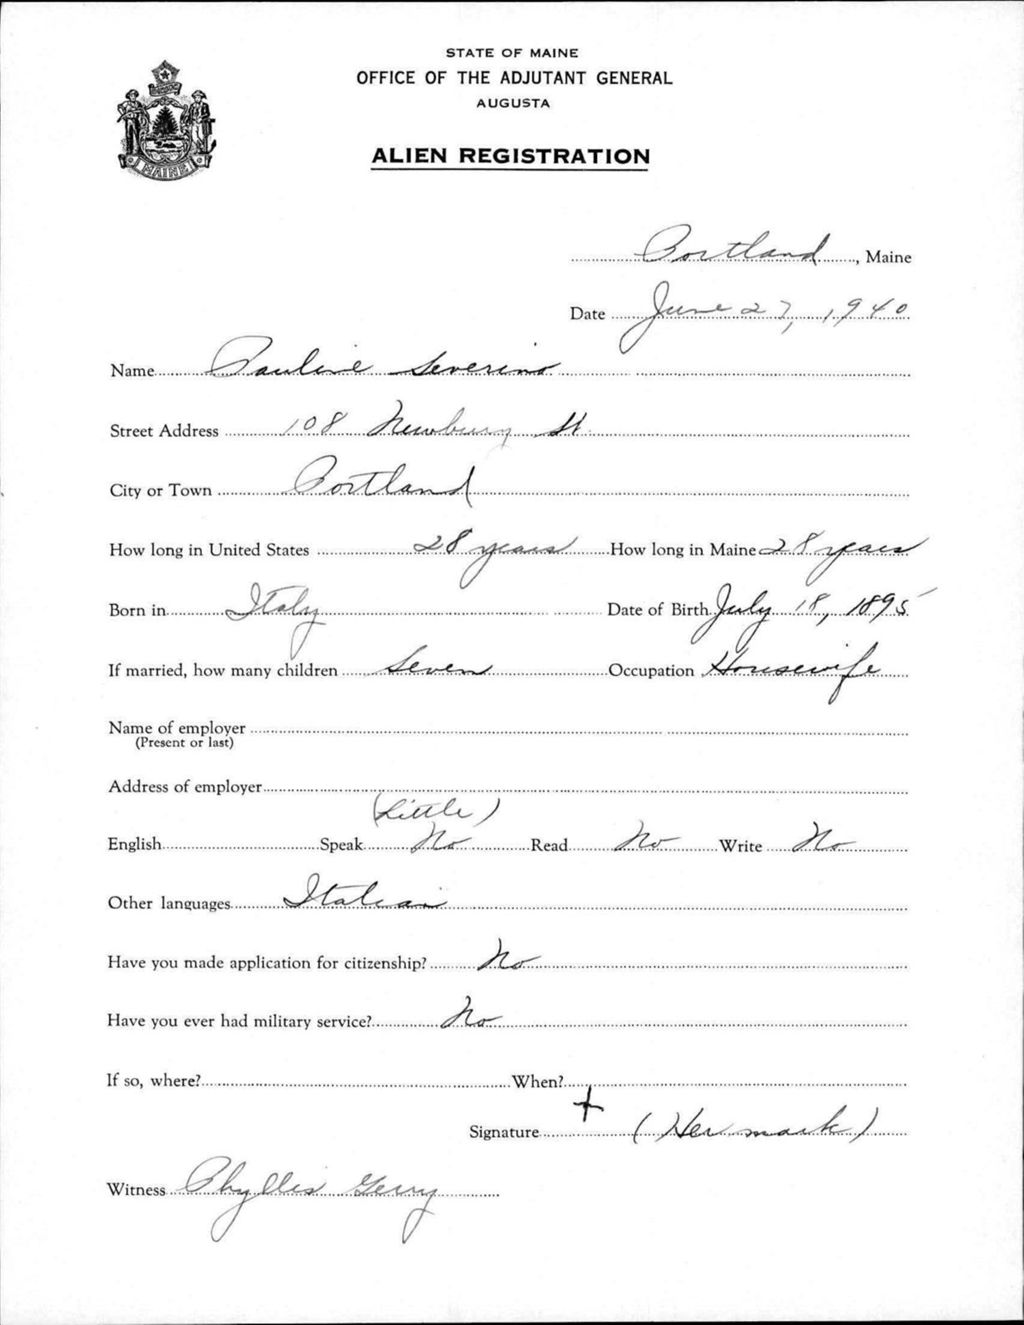 STATE OF MAINE
OFFICE OF THE ADJUTANT GENERAL
AUGUSTA
ALIEN REGISTRATION
MAINE
Portland, Maine
Date June 27, 1940
Name Pauline Severino
Street Address 108 Newbury St.
City or Town Portland
How long in United States 28 years How long in Maine 28 years
Born in Italy Date of Birth July 18, 1895
If married, how many children Seven Occupation Housewife
Name of employer
(Present or last)
Address of employer
(Little)
English Speak No Read No Write No
Other languages Italian
Have you made application for citizenship? No
Have you ever had military service? No
If so, where? When?
Signature + (Her mark)
Witness Phyllis Gerry